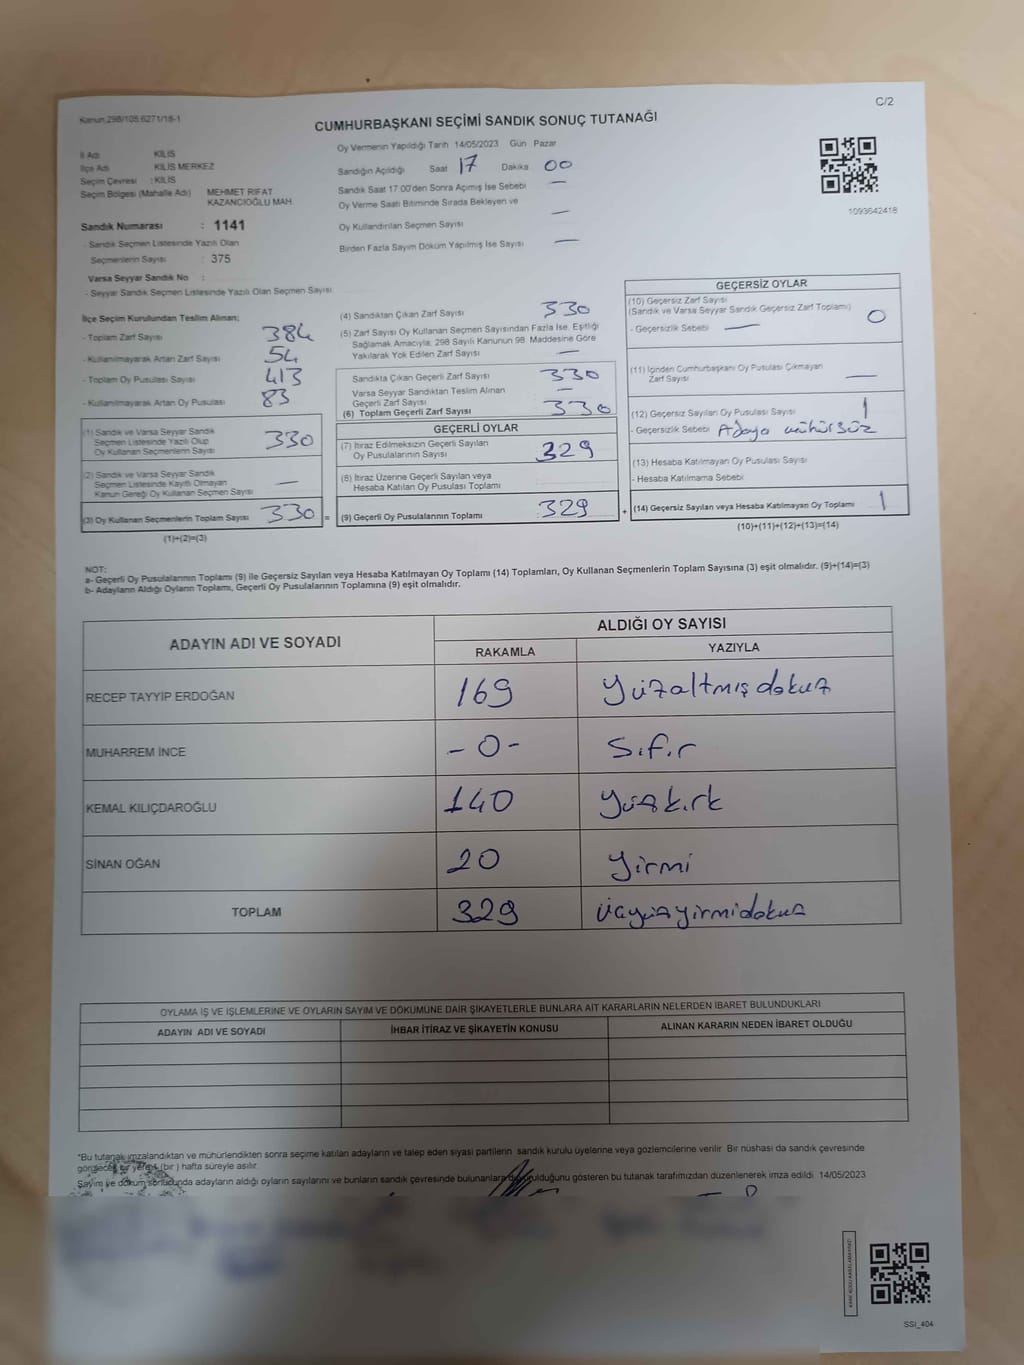 C/2
Kanun.298/105.6271/18-1
CUMHURBAŞKANI SEÇİMİ SANDIK SONUÇ TUTANAĞI
İl Adı KİLİS
İlçe Adı KİLİS MERKEZ
Seçim Çevresi : KİLİS
Seçim Bölgesi (Mahalle Adı) MEHMET RIFAT KAZANCIOĞLU MAH.
Sandık Numarası : 1141
- Sandık Seçmen Listesinde Yazılı Olan
Seçmenlerin Sayısı : 375
Varsa Seyyar Sandık No :
- Seyyar Sandık Seçmen Listesinde Yazılı Olan Seçmen Sayısı
Oy Vermenin Yapıldığı Tarih 14/05/2023 Gün Pazar
Sandığın Açıldığı Saat 17 Dakika 00
Sandık Saat 17.00'den Sonra Açımış İse Sebebi —
Oy Verme Saati Bitiminde Sırada Bekleyen ve
Oy Kullandırılan Seçmen Sayısı —
Birden Fazla Sayım Döküm Yapılmış İse Sayısı —
1093642418
İlçe Seçim Kurulundan Teslim Alınan;
- Toplam Zarf Sayısı 384
- Kullanılmayarak Artan Zarf Sayısı 54
- Toplam Oy Pusulası Sayısı 413
- Kullanılmayarak Artan Oy Pusulası 83
(1) Sandık ve Varsa Seyyar Sandık
Seçmen Listesinde Yazılı Olup
Oy Kullanan Seçmenlerin Sayısı 330
(2) Sandık ve Varsa Seyyar Sandık
Seçmen Listesinde Kayıtlı Olmayan
Kanun Gereği Oy Kullanan Seçmen Sayısı —
(3) Oy Kullanan Seçmenlerin Toplam Sayısı 330 =
(1)+(2)=(3)
(4) Sandıktan Çıkan Zarf Sayısı 330
(5) Zarf Sayısı Oy Kullanan Seçmen Sayısından Fazla İse, Eşitliği
Sağlamak Amacıyla; 298 Sayılı Kanunun 98. Maddesine Göre
Yakılarak Yok Edilen Zarf Sayısı —
Sandıkta Çıkan Geçerli Zarf Sayısı 330
Varsa Seyyar Sandıktan Teslim Alınan
Geçerli Zarf Sayısı —
(6) Toplam Geçerli Zarf Sayısı 330
GEÇERLİ OYLAR
(7) İtiraz Edilmeksizin Geçerli Sayılan
Oy Pusulalarının Sayısı 329
(8) İtiraz Üzerine Geçerli Sayılan veya
Hesaba Katılan Oy Pusulası Toplamı
(9) Geçerli Oy Pusulalarının Toplamı : 329 +
GEÇERSİZ OYLAR
(10) Geçersiz Zarf Sayısı
(Sandık ve Varsa Seyyar Sandık Geçersiz Zarf Toplamı) 0
- Geçersizlik Sebebi —
(11) İçinden Cumhurbaşkanı Oy Pusulası Çıkmayan
Zarf Sayısı —
(12) Geçersiz Sayılan Oy Pusulası Sayısı 1
- Geçersizlik Sebebi Adaya mühürsüz
(13) Hesaba Katılmayan Oy Pusulası Sayısı
- Hesaba Katılmama Sebebi
(14) Geçersiz Sayılan veya Hesaba Katılmayan Oy Toplamı 1
(10)+(11)+(12)+(13)=(14)
NOT:
a- Geçerli Oy Pusulalarının Toplamı (9) ile Geçersiz Sayılan veya Hesaba Katılmayan Oy Toplamı (14) Toplamları, Oy Kullanan Seçmenlerin Toplam Sayısına (3) eşit olmalıdır. (9)+(14)=(3)
b- Adayların Aldığı Oyların Toplamı, Geçerli Oy Pusulalarının Toplamına (9) eşit olmalıdır.
ADAYIN ADI VE SOYADI ALDIĞI OY SAYISI
RAKAMLA YAZIYLA
RECEP TAYYİP ERDOĞAN 169 yüzaltmışdokuz
MUHARREM İNCE -0- Sıfır
KEMAL KILIÇDAROĞLU 140 yüzkırk
SİNAN OĞAN 20 yirmi
TOPLAM 329 üçyüzyirmidokuz
OYLAMA İŞ VE İŞLEMLERİNE VE OYLARIN SAYIM VE DÖKÜMÜNE DAİR ŞİKAYETLERLE BUNLARA AİT KARARLARIN NELERDEN İBARET BULUNDUKLARI
ADAYIN ADI VE SOYADI İHBAR İTİRAZ VE ŞİKAYETİN KONUSU ALINAN KARARIN NEDEN İBARET OLDUĞU
*Bu tutanak imzalandıktan ve mühürlendikten sonra seçime katılan adayların ve talep eden siyasi partilerin sandık kurulu üyelerine veya gözlemcilerine verilir. Bir nüshası da sandık çevresinde
görülecek bir yere 1 (bir) hafta süreyle asılır.
Sayım ve döküm sonucunda adayların aldığı oyların sayılarını ve bunların sandık çevresinde bulunanlara duyurulduğunu gösteren bu tutanak tarafımızdan düzenlenerek imza edildi. 14/05/2023
SSI_404